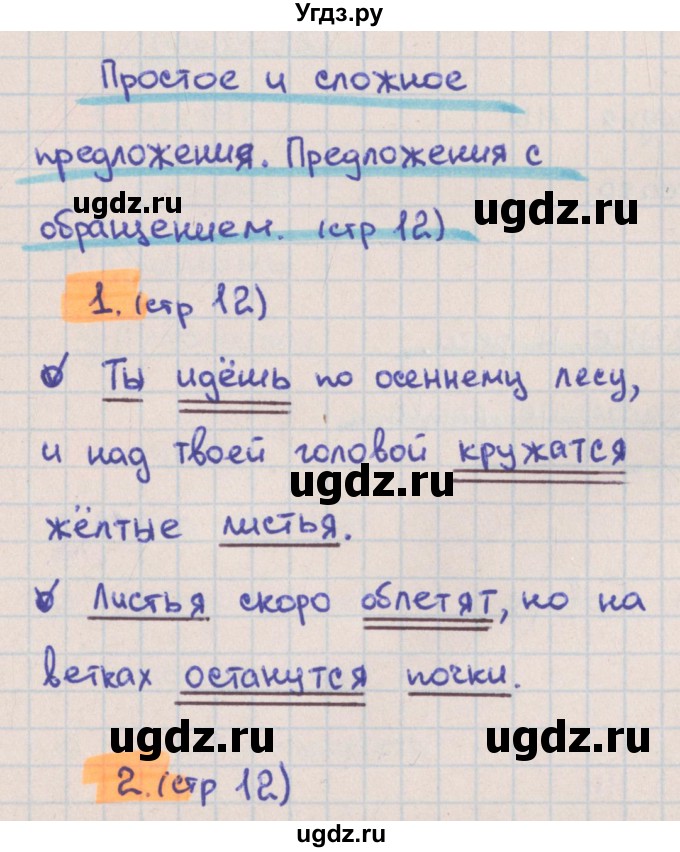 Угдз.ру
Простое и сложное
предложения. Предложения с
ugdz.ru ugdz.ru
обращением. (стр 12)
1. (стр 12)
Ты идёшь по осеннему лесу,
и над твоей головой кружатся
ugdz.ru
жёлтые листья.
Листья скоро облетят, но на
ветках останутся почки.
ugdz.ru ugdz.ru
2. (стр 12)
ugdz.ru